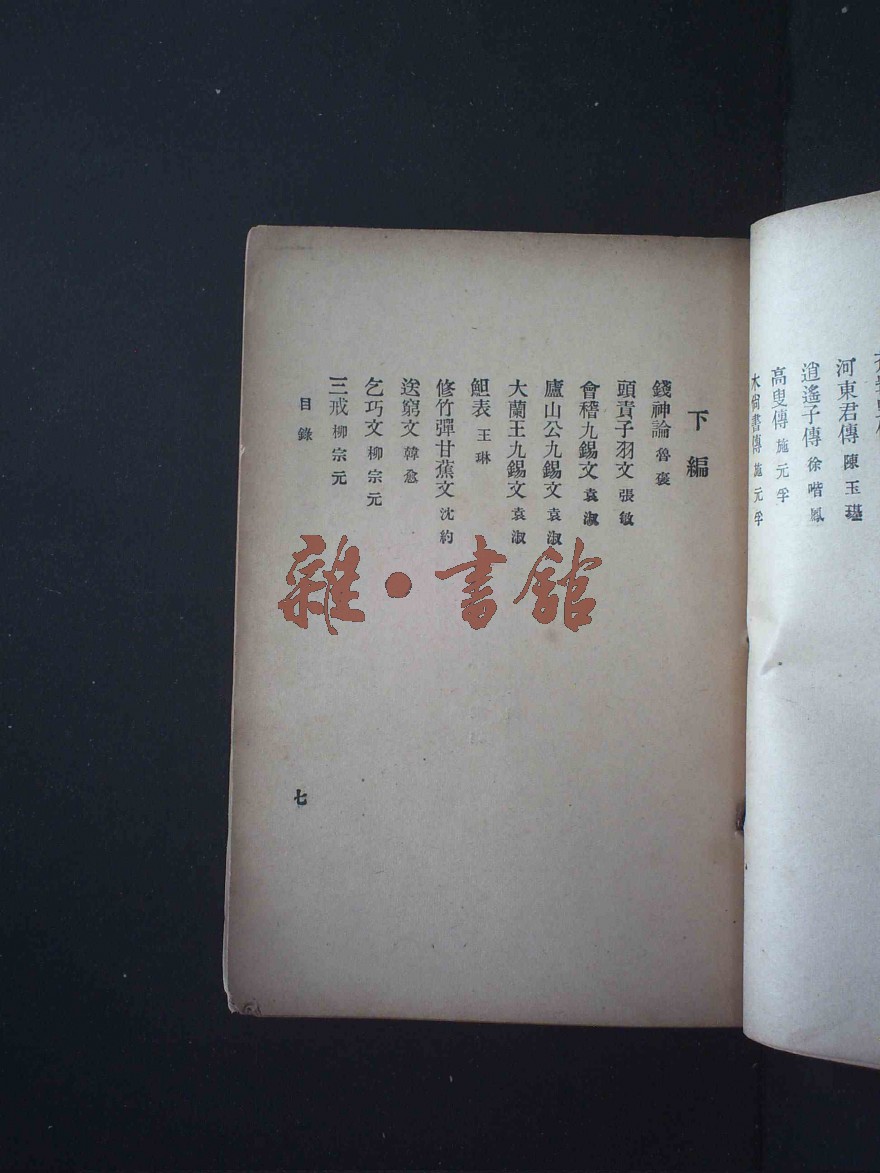 河東君傳 陳玉璂
逍遙子傳 徐喈鳳
高叟傳 施元孚
木尙書傳 施元孚
下編
錢神論 魯褒
頭責子羽文 張敏
會稽九錫文 袁淑
廬山公九錫文 袁淑
大蘭王九錫文 袁淑
䱇表 王琳
修竹彈甘蕉文 沈約
送窮文 韓愈
乞巧文 柳宗元
三戒 柳宗元
目錄
七
雜·書館